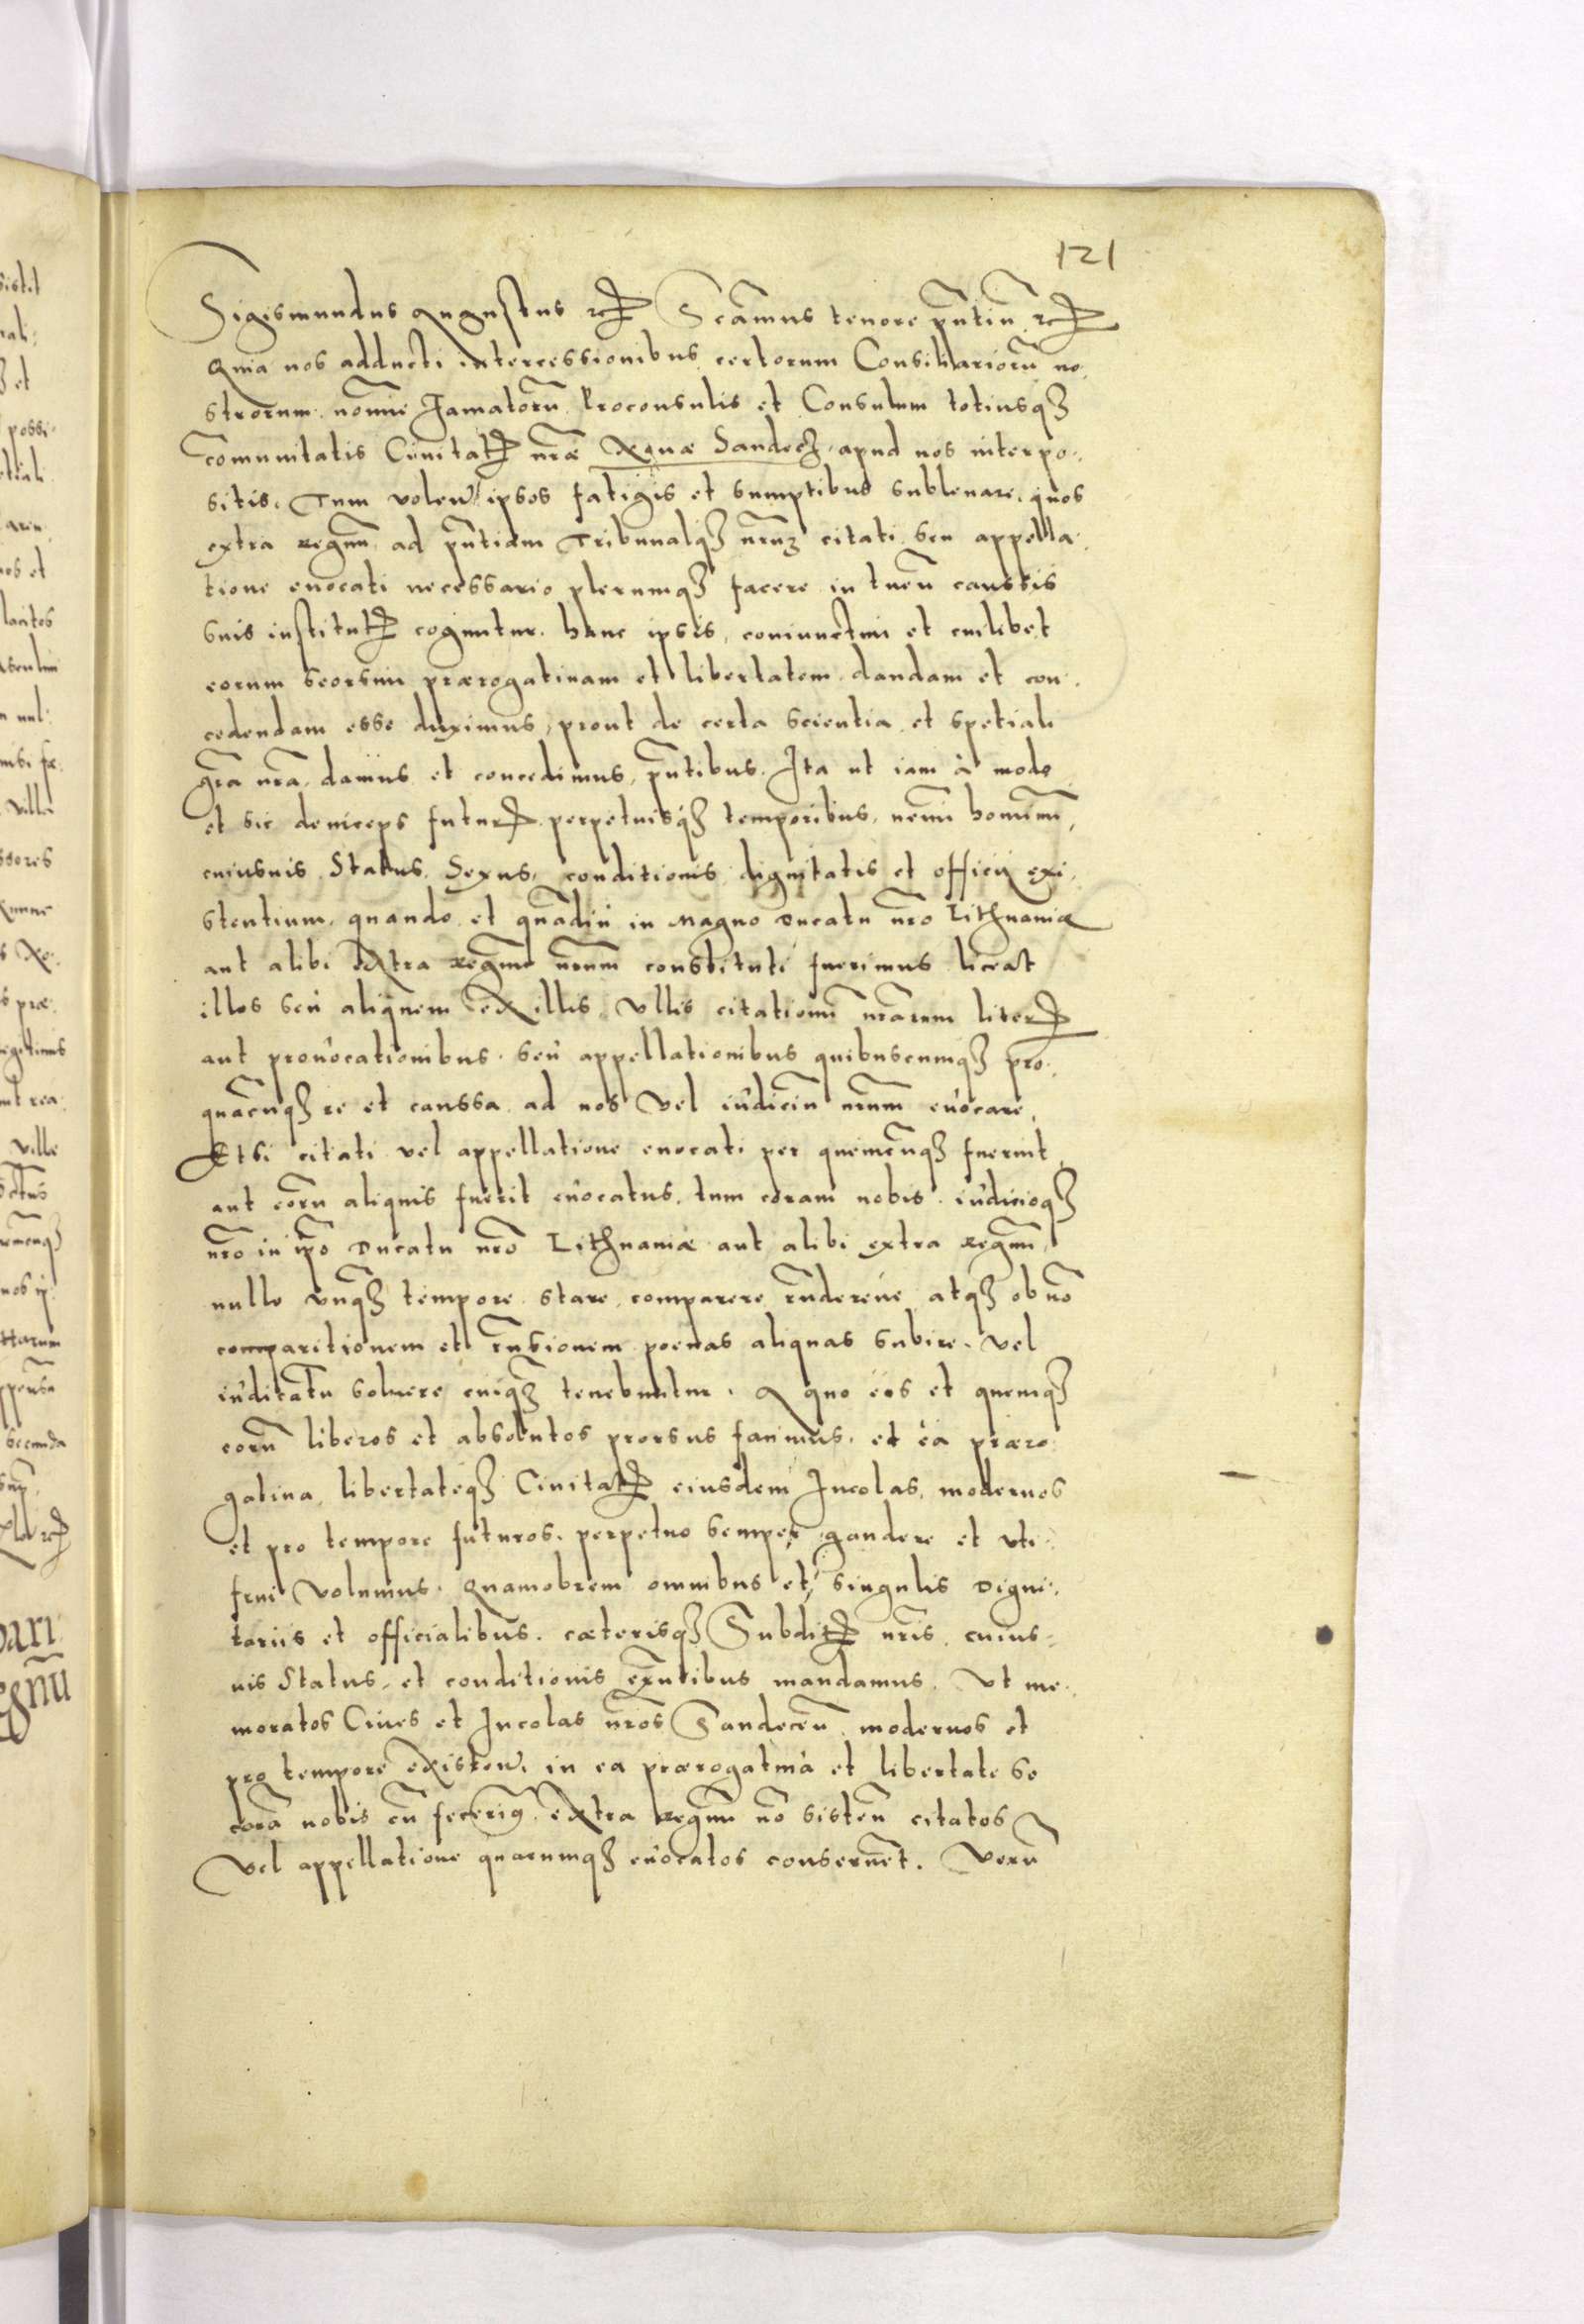 121
Sigismundus Augustus etc Scãmus tenore pñtiũ etc
Quia nos adducti intercessionibus certorum Consiliariorũ no
strorum noĩe Famatorũ Proconsulis et Consulum totiusq3
cõmunitatis Ciuitatis nr̃æ Nouæ Sandecz apud nos interpo
sitis. Tum volen ipsos fatigis et sumptibus subleuare, quos
extra regnũ ad pñtiam Tribunalq3 nr̃um citati seu appella
tione euocati necessario plerumq3 facere in tuen̄ caussis
suis institutis coguntur. hanc ipsis, coniunctim et cuilibet
eorum seorsim prærogatiuam et libertatem dandam et con
cedendam esse duximus, prout de certa scientia et spetiali
gr̃a nr̃a damus et concedimus, pñtibus. Ita ut iam à modo
et sic deinceps futuris perpetuisq3 temporibus, nemini hominũ,
cuiusuis Status, Sexus, conditionis dignitatis et officij exi
stentium, quando et quãdiu in Magno Ducatu nr̃o Lithuaniæ
aut alibi extra regnũ nr̃um constituti fuerimus liceat
illos seu aliquem ex illis vllis citationũ nr̃arum literis
aut prouocationibus seu appellationibus quibuscumq3 pro
quacũq3 re et caussa ad nos vel iudiciũ nr̃um euocare,
Et si citati vel appellatione euocati per quemcũq3 fuerint
aut eorũ aliquis fuerit euocatus, tum coram nobis iudicioq3
nr̃o in ip̃o Ducatu nr̃o Lithuaniæ aut alibi extra regnũ,
nullo vnq̃3 tempore stare, comparere rñdereúe atq3 ob nõ
comparitionem et rñsionem poenas aliquas subire, vel
iuditatũ soluere cuiq3 tenebuntur. A quo eos et quemq3
eorũ liberos et absolutos prorsus facimus, et ea præro
gatiua, libertateq3 Ciuitatis eiusdem Incolas, modernos
et pro tempore futuros, perpetuo semper gaudere et vti
frui volumus. Quamobrem omnibus et singulis Digni
tariis et officialibus, cæterisq3 Subditis nr̃is, cuius
uis Status, et conditionis exñtibus mandamus. Ut me
moratos Ciues et Incolas nr̃os Sandecen̄ modernos et
pro tempore existen, in ea prærogatiua et libertate se
corã nobis cũ fecerim9 extra regnũ nõ sisten̄ citatos
Vel appellatione quacumq3 euocatos conseruẽt. Verũ